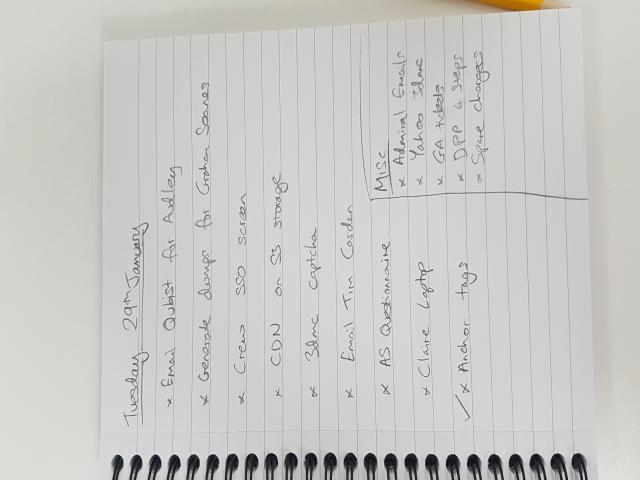 Tuesday 29th January
x Email Qubist for Audley
x Generate dumps for Graham Soanes
x Crew SSO screen
x CDN on S3 storage
x 3dmc captcha
x Email Tim Carden
x AS Questionnaire.
x Claire Laptop
✓ x Anchor tags
Misc
x Admiral Emails
x Yahoo 3dmc
x GA tickets
x DPP 4 Steps
x Spare chargers